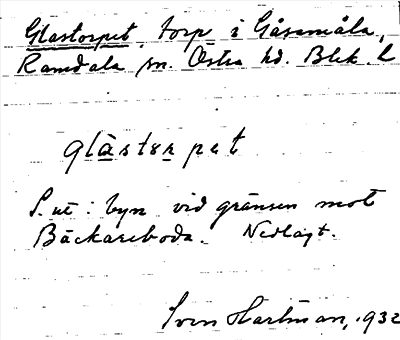 Glastorpet, torp i Gåsamåla,
Ramdala sn. Östra hd. Blek. l
glàstorpet
S. ut i byn vid gränsen mot
Bäckareboda. Nedlagt.
Sven Hartman, 1932